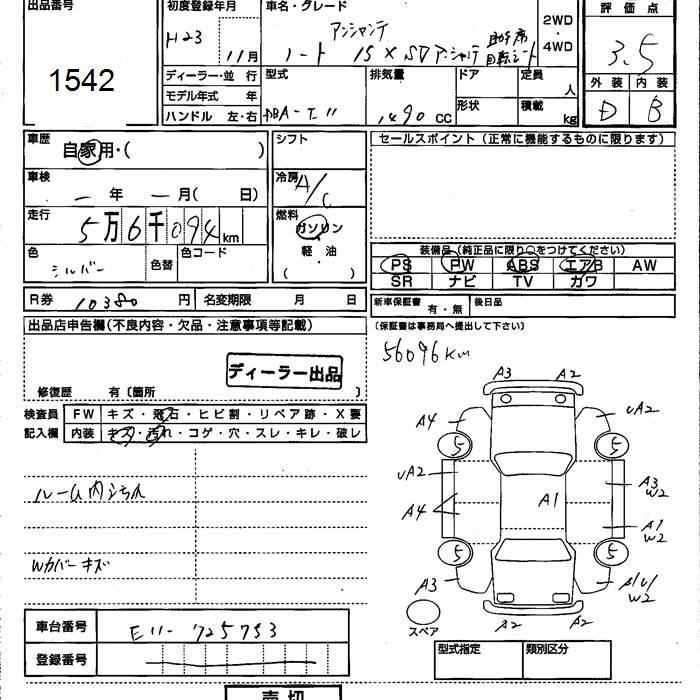 出品番号 初度登録年月 車名・グレード 評価点
1542
H23 11月
アシャンテ
ノート 15×SV アシャンテ 助手席
回転シート
2WD
・
4WD
3.5
外装 内装
D B
ディーラー・並行 型式 排気量 ドア 定員
人
モデル年式 年
形状 積載
ハンドル 左・右 DBA-E11 1490 CC kg
車歴 自家用・( )
シフト
セールスポイント(正常に機能するものに限ります)
車検
年 月( 日)
冷房 A/C
走行 5万6千094km
燃料 ガソリン
軽・油
( )
色 シルバー 色替 色コード
装備品(純正品に限り○をつけてください)
PS PW ABS エアB AW
SR ナビ TV カワ
R券 10380 円 名変期限 月 日
新車保証書 有・無 後日品
(保証書は事務局へ提出して下さい)
出品店申告欄(不良内容・欠品・注意事項等記載)
56096Km
ディーラー出品
修復歴 有〔箇所 〕
検査員 FW キズ・飛石・ヒビ割・リペア跡・X要
記入欄 内装 キズ・汚れ・コゲ・穴・スレ・キレ・破レ
A3 A2
A4 5 5 UA2
UA2 A3
W2
A4 A1 A1
W2
5 5
A3 A1U1
W2
A2 A2
スペア
ルーム内ヨゴレ
Wカバーキズ
車台番号 E11-725753
登録番号
型式指定 類別区分
売切